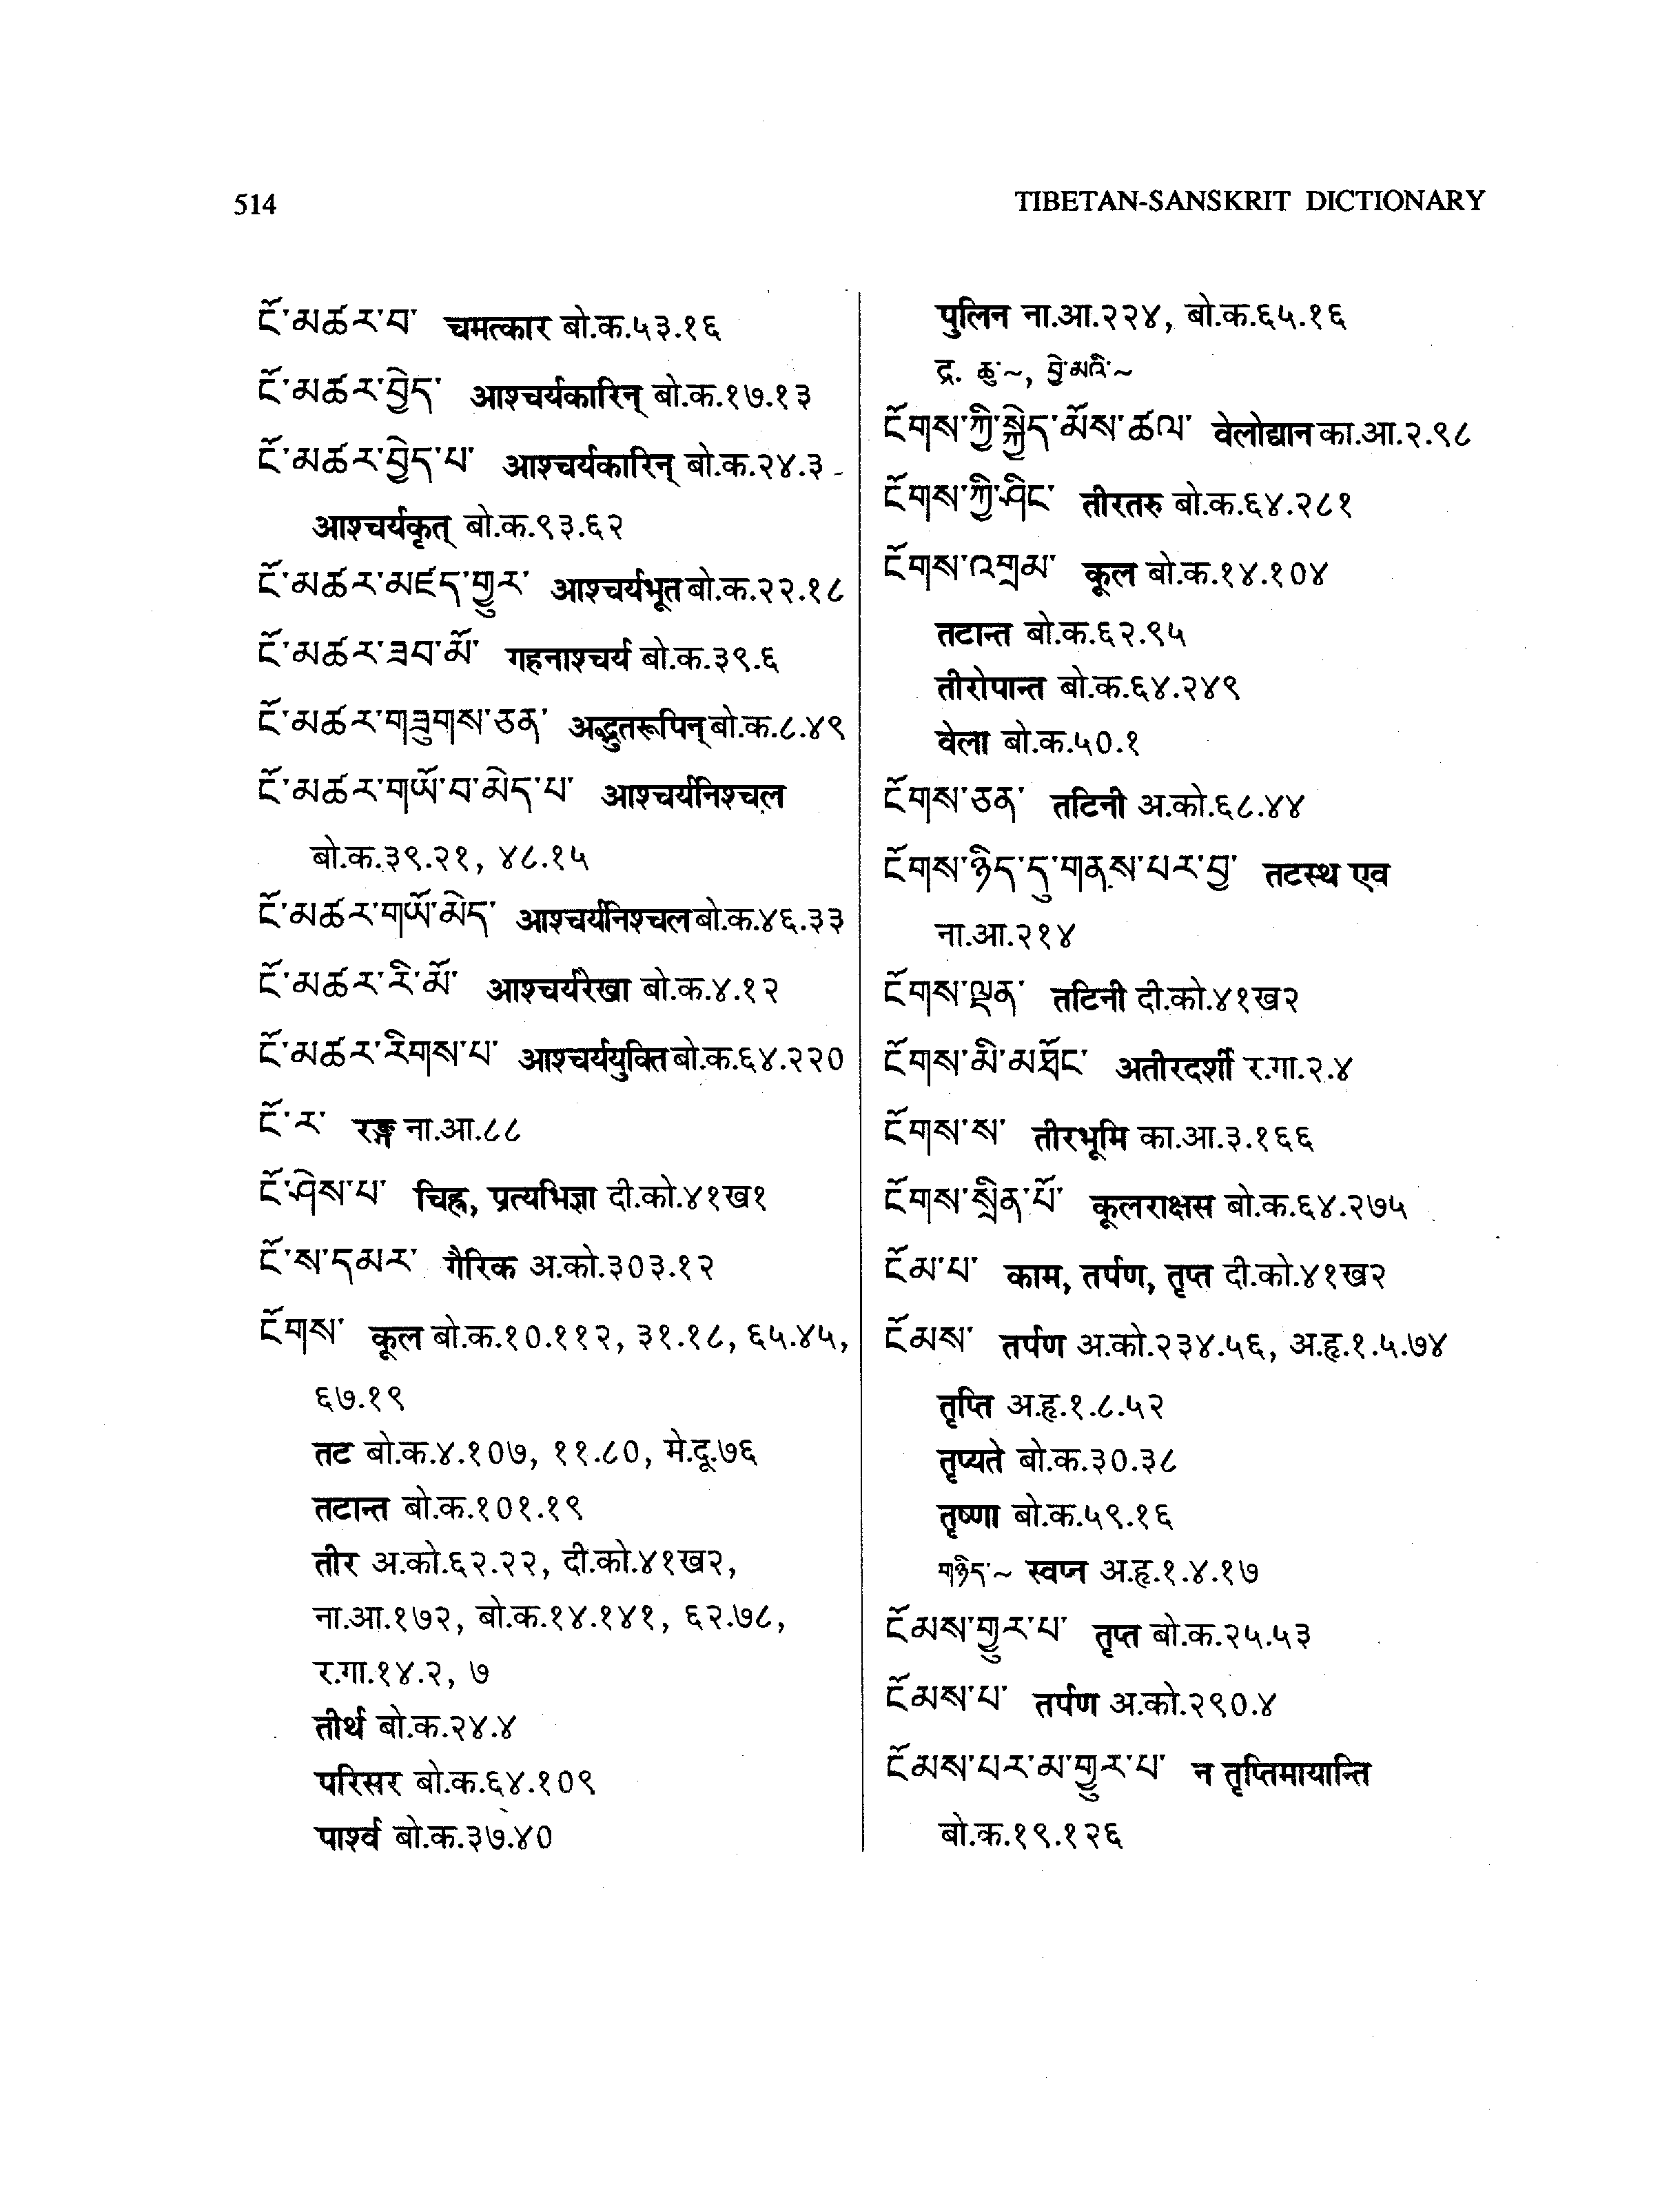 514
TIBETAN-SANSKRIT DICTIONARY
ངོ་མཚར་བ་ चमत्कार बो.क.५३.१६
ངོ་མཚར་བྱེད་ आश्चर्यकारिन् बो.क.१७.१३
ངོ་མཚར་བྱེད་པ་ आश्चर्यकारिन् बो.क.२४.३
आश्चर्यकृत् बो.क.९३.६२
ངོ་མཚར་མཛད་གྱུར་ आश्चर्यभूत बो.क.२२.१८
ངོ་མཚར་ཟབ་མོ་ गहनाश्चर्य बो.क.३९.६
ངོ་མཚར་གཟུགས་ཅན་ अद्भुतरूपिन् बो.क.८.४९
ངོ་མཚར་གཡོ་བ་མེད་པ་ आश्चर्यनिश्चल
बो.क.३९.२१, ४८.१५
ངོ་མཚར་གཡོ་མེད་ आश्चर्यनिश्चल बो.क.४६.३३
ངོ་མཚར་རི་མོ་ आश्चर्यरेखा बो.क.४.१२
ངོ་མཚར་རིགས་པ་ आश्चर्ययुक्ति बो.क.६४.२२०
ངོ་ར་ रङ्ग ना.आ.८८
ངོ་ཤེས་པ་ चिह्न, प्रत्यभिज्ञा दी.को.४१ख१
ངོ་ས་དམར་ गैरिक अ.को.३०३.१२
ངོགས་ कूल बो.क.१०.११२, ३१.१८, ६५.४५,
६७.१९
तट बो.क.४.१०७, ११.८०, मे.दू.७६
तटान्त बो.क.१०१.१९
तीर अ.को.६२.२२, दी.को.४१ख२,
ना.आ.१७२, बो.क.१४.१४१, ६२.७८,
र.गा.१४.२, ७
तीर्थ बो.क.२४.४
परिसर बो.क.६४.१०९
पार्श्व बो.क.३७.४०
पुलिन ना.आ.२२४, बो.क.६५.१६
द्र. ཆུ་~, བྱེ་མའི་~
ངོགས་ཀྱི་སྐྱེད་མོས་ཚལ་ वेलोद्यान का.आ.२.९८
ངོགས་ཀྱི་ཤིང་ तीरतरु बो.क.६४.२८१
ངོགས་འགྲམ་ कूल बो.क.१४.१०४
तटान्त बो.क.६२.९५
तीरोपान्त बो.क.६४.२४९
वेला बो.क.५०.१
ངོགས་ཅན་ तटिनी अ.को.६८.४४
ངོགས་ཉིད་དུ་གནས་པར་བྱ་ तटस्थ एव
ना.आ.२१४
ངོགས་ལྡན་ तटिनी दी.को.४१ख२
ངོགས་མི་མཐོང་ अतीरदर्शी र.गा.२.४
ངོགས་ས་ तीरभूमि का.आ.३.१६६
ངོགས་སྲིན་པོ་ कूलराक्षस बो.क.६४.२७५
ངོམ་པ་ काम, तर्पण, तृप्त दी.को.४१ख२
ངོམས་ तर्पण अ.को.२३४.५६, अ.हृ.१.५.७४
तृप्ति अ.हृ.१.८.५२
तृप्यते बो.क.३०.३८
तृष्णा बो.क.५९.१६
གཉིད་~ स्वप्न अ.हृ.१.४.१७
ངོམས་གྱུར་པ་ तृप्त बो.क.२५.५३
ངོམས་པ་ तर्पण अ.को.२९०.४
ངོམས་པར་མ་གྱུར་པ་ न तृप्तिमायान्ति
बो.क.१९.१२६